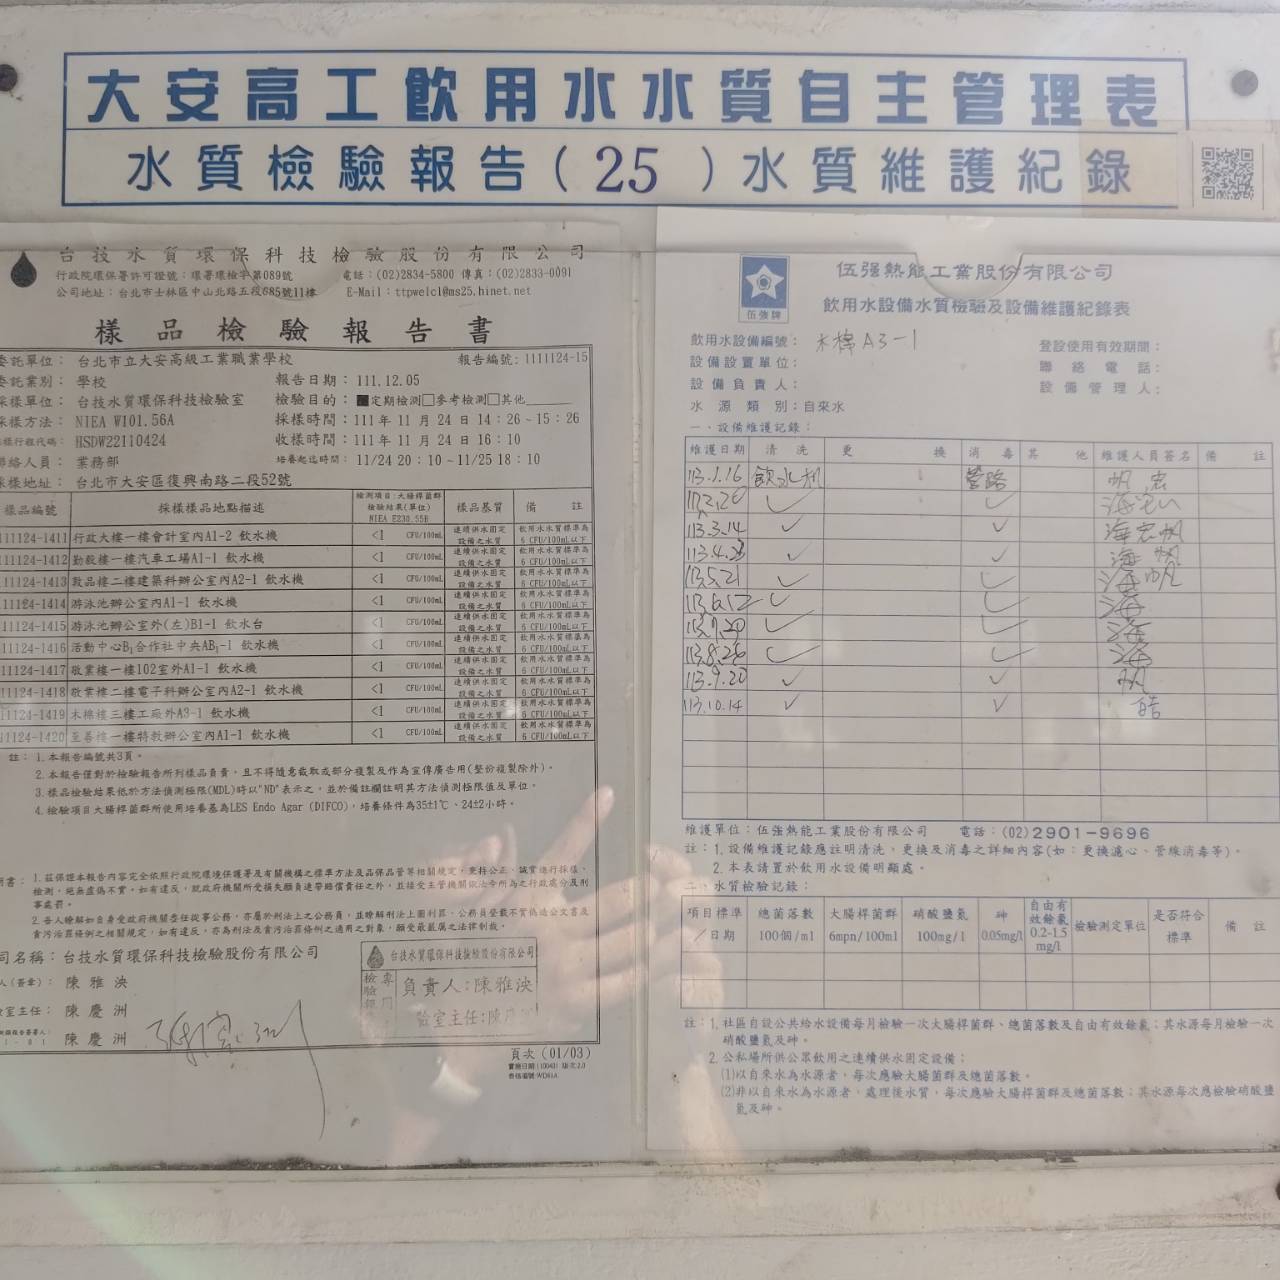 大安高工飲用水水質自主管理表
水質檢驗報告(25)水質維護紀錄
台技水質環保科技檢驗股份有限公司
行政院環保署許可證號：環署環檢字第089號
電話：(02)2834-5800 傳真：(02)2833-0091
公司地址：台北市士林區中山北路五段685號11樓
E-Mail：ttpwelcl@ms25.hinet.net
樣品檢驗報告書
委託單位：台北市立大安高級工業職業學校
報告編號：1111124-15
委託業別：學校
報告日期：111.12.05
採樣單位：台技水質環保科技檢驗室
檢驗目的：■定期檢測□參考檢測□其他
採樣方法：NIEA W101.56A
採樣時間：111年11月24日14：26~15：26
採樣行程代碼：HSDW22110424
收樣時間：111年11月24日16：10
聯絡人員：業務部
培養起迄時間：11/24 20：10~11/25 18：10
採樣地址：台北市大安區復興南路二段52號
樣品編號 採樣樣品地點描述 檢測項目:大腸桿菌群 檢驗結果(單位) NIEA E230.55B 樣品基質 備註
111124-1411 行政大樓一樓會計室內A1-2 飲水機 <1 CFU/100mL 連續供水固定設備之水質 飲用水水質標準為6 CFU/100mL以下
111124-1412 勤毅樓一樓汽車工場A1-1 飲水機 <1 CFU/100mL 連續供水固定設備之水質 飲用水水質標準為6 CFU/100mL以下
111124-1413 敦品樓二樓建築科辦公室內A2-1 飲水機 <1 CFU/100mL 連續供水固定設備之水質 飲用水水質標準為6 CFU/100mL以下
111124-1414 游泳池辦公室內A1-1 飲水機 <1 CFU/100mL 連續供水固定設備之水質 飲用水水質標準為6 CFU/100mL以下
111124-1415 游泳池辦公室外(左)B1-1 飲水台 <1 CFU/100mL 連續供水固定設備之水質 飲用水水質標準為6 CFU/100mL以下
111124-1416 活動中心B1合作社中央AB1-1 飲水機 <1 CFU/100mL 連續供水固定設備之水質 飲用水水質標準為6 CFU/100mL以下
111124-1417 敬業樓一樓102室外A1-1 飲水機 <1 CFU/100mL 連續供水固定設備之水質 飲用水水質標準為6 CFU/100mL以下
111124-1418 敬業樓二樓電子科辦公室內A2-1 飲水機 <1 CFU/100mL 連續供水固定設備之水質 飲用水水質標準為6 CFU/100mL以下
111124-1419 木棉樓三樓工廠外A3-1 飲水機 <1 CFU/100mL 連續供水固定設備之水質 飲用水水質標準為6 CFU/100mL以下
111124-1420 至善樓一樓特教辦公室內A1-1 飲水機 <1 CFU/100mL 連續供水固定設備之水質 飲用水水質標準為6 CFU/100mL以下
註：1.本報告編號共3頁。
2.本報告僅對於檢驗報告所列樣品負責，且不得隨意截取或部分複製及作為宣傳廣告用(整份複製除外)。
3.樣品檢驗結果低於方法偵測極限(MDL)時以"ND"表示之，並於備註欄註明其方法偵測極限值及單位。
4.檢驗項目大腸桿菌群所使用培養基為LES Endo Agar (DIFCO)，培養條件為35±1℃、24±2小時。
1.茲保證本報告內容完全依照行政院環境保護署及有關機構之標準方法及品保品管等相關規定，秉持公正、誠實進行採樣、
檢測，絕無虛偽不實。如有違反，就政府機關所受損失願負連帶賠償責任之外，並接受主管機關依法令所為之行政處分及刑
事處罰。
2.吾人瞭解如自身受政府機關委任從事公務，亦屬於刑法上之公務員，並瞭解刑法上圖利罪、公務員登載不實偽造公文書及
貪污治罪條例之相關規定，如有違反，亦為刑法及貪污治罪條例之適用之對象，願受最嚴厲之法律制裁。
司名稱：台技水質環保科技檢驗股份有限公司
人(簽章)：陳雅泱
驗室主任：陳慶洲
陳慶洲
台技水質環保科技檢驗股份有限公司
負責人:陳雅泱
驗室主任:陳慶洲
頁次 (01/03)
伍強牌
伍強熱能工業股份有限公司
飲用水設備水質檢驗及設備維護紀錄表
飲用水設備編號：木棉A3-1
登設使用有效期間：
設備設置單位：
聯絡電話：
設備負責人：
設備管理人：
水源類別：自來水
一、設備維護記錄：
維護日期 清洗 更換 消毒 其他 維護人員簽名 備註
113.1.16 飲水机 管路 帆宏
113.2.20 ✓ ✓
113.3.14 ✓ ✓ 海宏帆
113.4.23 ✓ ✓ 海帆
113.5.21 ✓ ✓ 海帆
113.6.12 ✓ ✓ 海
113.7.29 ✓ ✓ 海
113.8.26 ✓ ✓ 海
113.9.20 ✓ ✓ 帆
113.10.14 ✓ ✓ 皓
維護單位：伍強熱能工業股份有限公司 電話：(02)2901-9696
註：1.設備維護記錄應註明清洗、更換及消毒之詳細內容(如：更換濾心、管線消毒等)。
2.本表請置於飲用水設備明顯處。
二、水質檢驗記錄：
項目標準／日期 總菌落數 100個/ml 大腸桿菌群 6mpn/100ml 硝酸鹽氮 100mg/l 砷 0.05mg/l 自由有效餘氯 0.2-1.5 mg/l 檢驗測定單位 是否符合標準 備註
註：1.社區自設公共給水設備每月檢驗一次大腸桿菌群、總菌落數及自由有效餘氯；其水源每月檢驗一次
硝酸鹽氮及砷。
2.公私場所供公眾飲用之連續供水固定設備：
(1)以自來水為水源者，每次應驗大腸菌群及總菌落數。
(2)非以自來水為水源者，處理後水質，每次應驗大腸桿菌群及總菌落數；其水源每次應檢驗硝酸鹽
氮及砷。